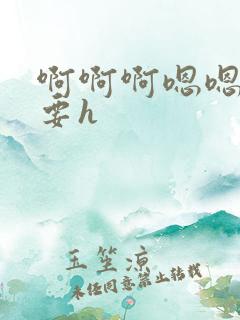 啊啊啊嗯嗯
要h
玉笙凉
未经同意禁止转载